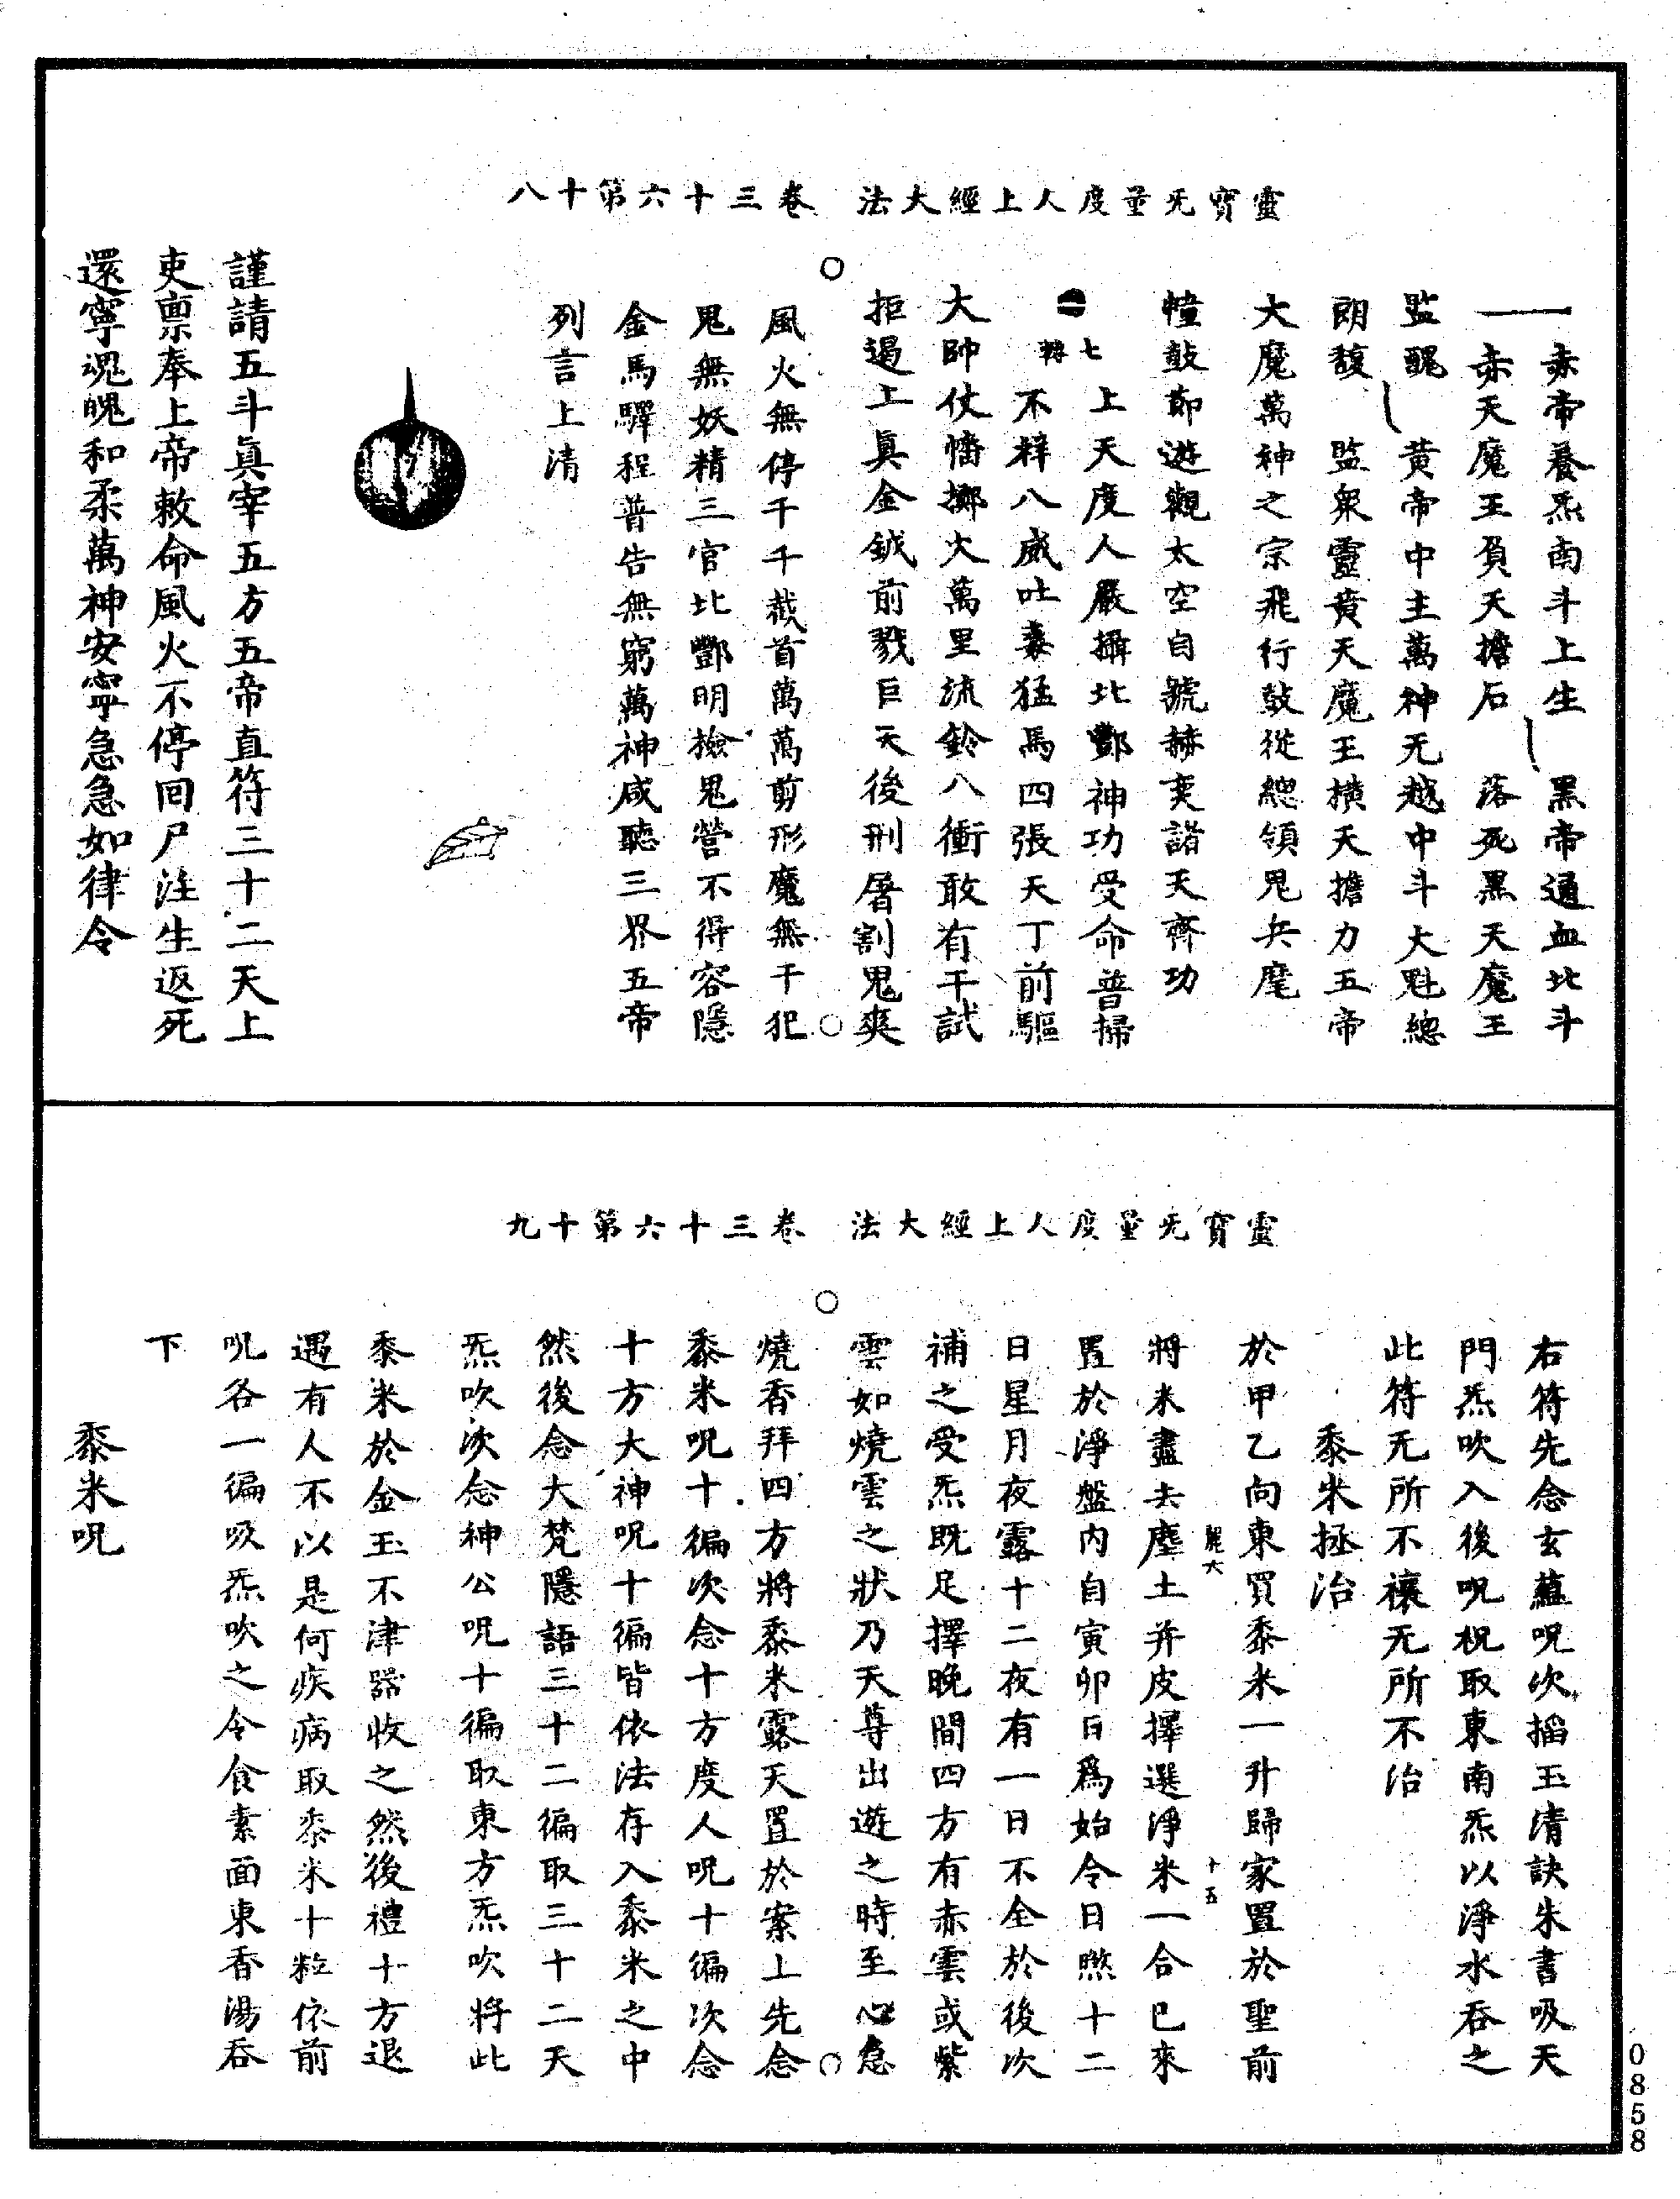 靈寶无量度人上經大法　卷三十六第十八
赤帝養炁南斗上生　黑帝通血北斗
赤天魔王負天擔石　落死黑天魔王
監醜　黃帝中主萬神无越中斗大魁總
朗馥　監衆靈黃天魔王橫天擔力五帝
大魔萬神之宗飛行鼓從總領鬼兵麾
幢鼓節遊觀太空自號赫奕諸天齊功
七轉　上天度人嚴攝北酆神功受命普掃
不祥八威吐毒猛馬四張天丁前驅
大帥仗幡擲火萬里流鈴八衝敢有干試
拒遏上眞金鉞前戮巨天後刑屠割鬼爽
風火無停千千截首萬萬剪形魔無干犯
鬼無妖精三官北酆明撿鬼營不得容隱
金馬驛程普告無窮萬神咸聽三界五帝
列言上清
謹請五斗眞宰五方五帝直符三十二天上
吏稟奉上帝敕命風火不停回尸注生返死
還寧魂魄和柔萬神安寧急急如律令
靈寶无量度人上經大法　卷三十六第十九
右符先念玄蘊呪次搯玉清訣朱書吸天
門炁吹入後呪祝取東南炁以淨水吞之
此符无所不禳无所不治
黍米拯治
於甲乙向東買黍米一升歸家置於聖前
麗大　十五
將米盡去塵土并皮擇選淨米一合已來
置於淨盤內自寅卯日爲始令日煞十二
日星月夜露十二夜有一日不全於後次
補之受炁既足擇晚間四方有赤雲或紫
雲如燒雲之狀乃天尊出遊之時至心急
燒香拜四方將黍米露天置於案上先念
黍米呪十徧次念十方度人呪十徧次念
十方大神呪十徧皆依法存入黍米之中
然後念大梵隱語三十二徧取三十二天
炁吹次念神公呪十徧取東方炁吹將此
黍米於金玉不津器收之然後禮十方退
遇有人不以是何疾病取黍米十粒依前
呪各一徧吸炁吹之令食素面東香湯吞
下
黍米呪
0858